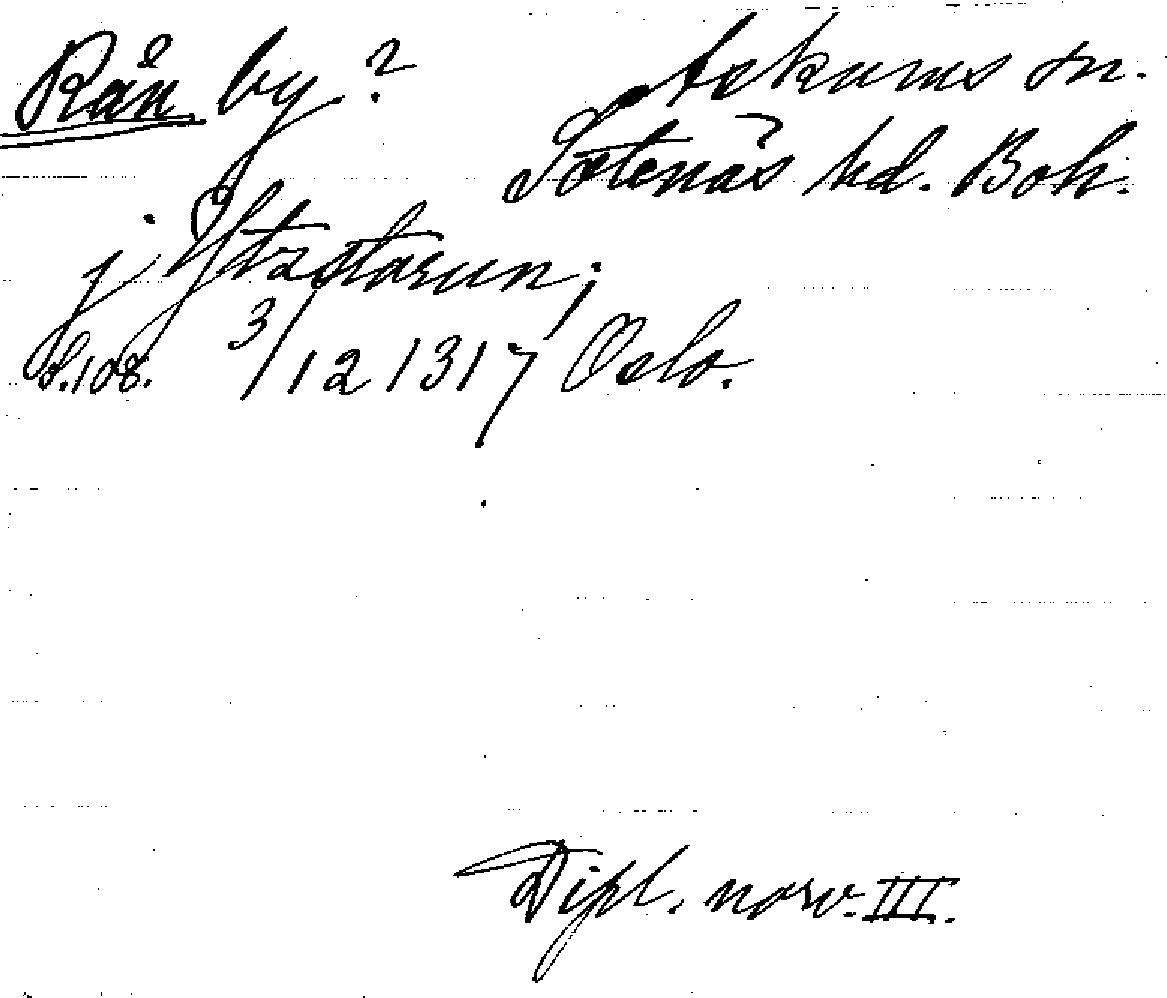 Rån by? Askums sn.
Sotenäs hd. Boh.
j Ytrastarun;
S. 108. 3/12 1317 Oslo.
Dipl. norv. III.